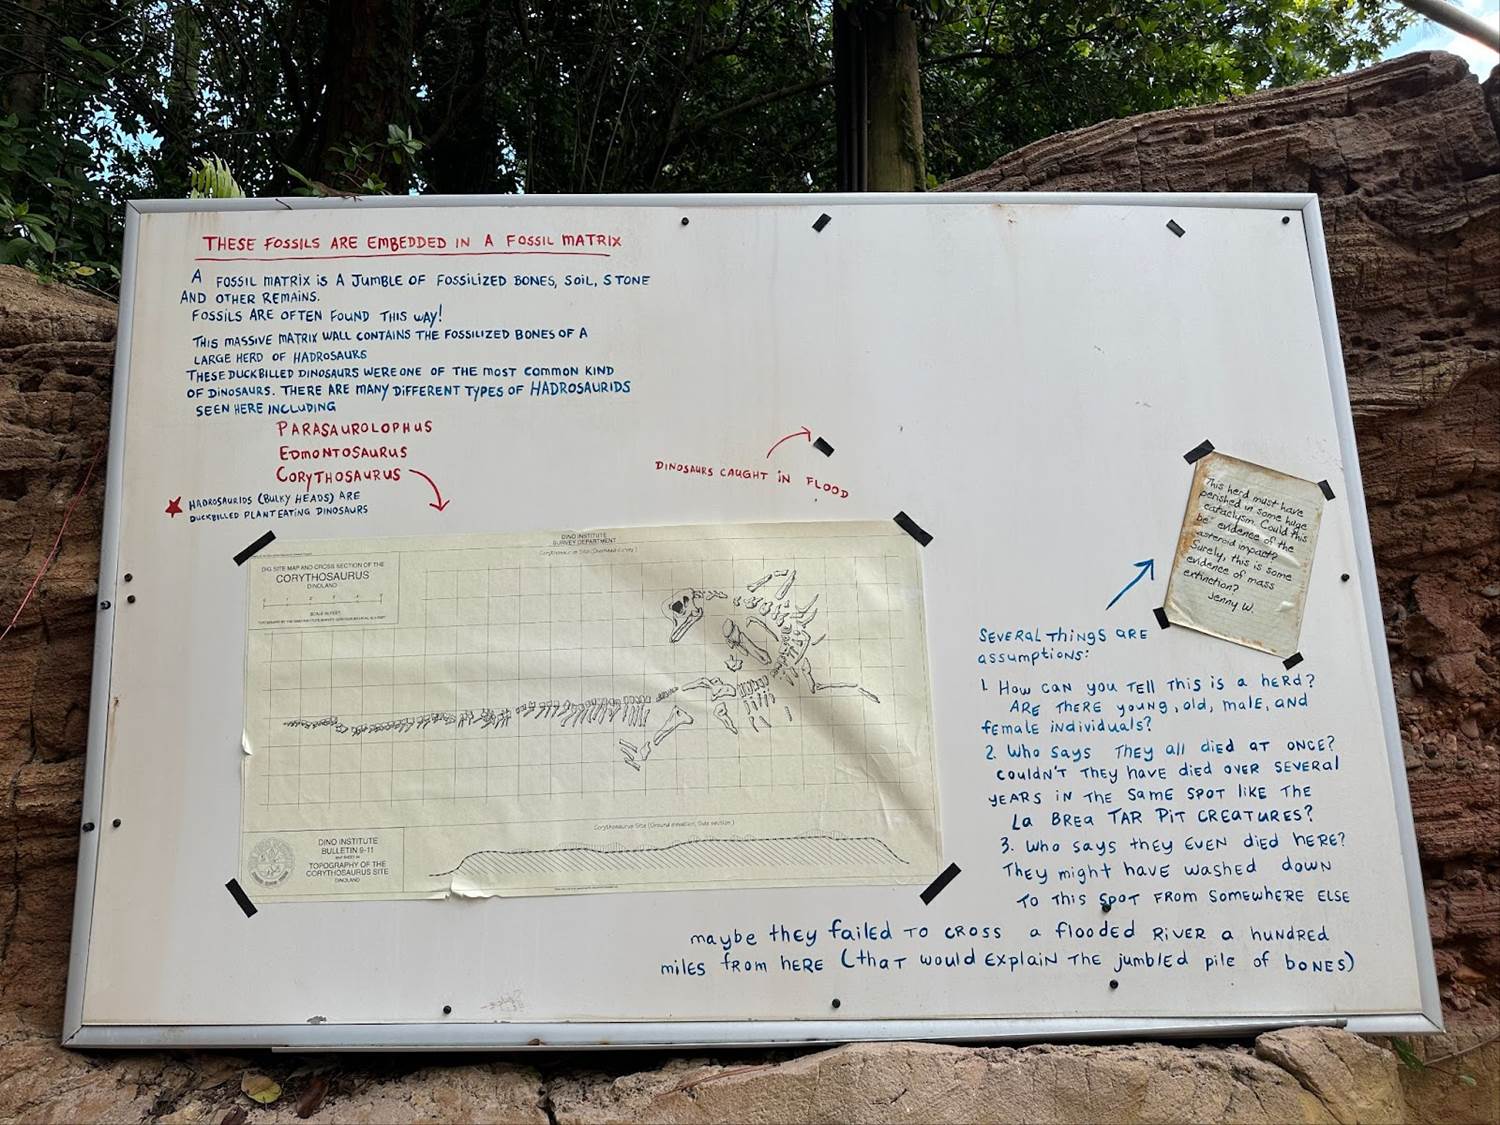 THESE FOSSILS ARE EMBEDDED IN A FOSSIL MATRIX
A FOSSIL MATRIX IS A JUMBLE OF FOSSILIZED BONES, SOIL, STONE
AND OTHER REMAINS.
FOSSILS ARE OFTEN FOUND THIS WAY!
THIS MASSIVE MATRIX WALL CONTAINS THE FOSSILIZED BONES OF A
LARGE HERD OF HADROSAURS
THESE DUCKBILLED DINOSAURS WERE ONE OF THE MOST COMMON KIND
OF DINOSAURS. THERE ARE MANY DIFFERENT TYPES OF HADROSAURIDS
SEEN HERE INCLUDING
PARASAUROLOPHUS
EDMONTOSAURUS
CORYTHOSAURUS
HADROSAURIDS (BULKY HEADS) ARE
DUCKBILLED PLANT EATING DINOSAURS
DINOSAURS CAUGHT IN FLOOD
DINO INSTITUTE
SURVEY DEPARTMENT
Corythosaurus Site (Overhead survey)
DIG SITE MAP AND CROSS SECTION OF THE
CORYTHOSAURUS
DINOLAND
SCALE IN FEET
Corythosaurus Site (Ground elevation, Side section)
DINO INSTITUTE
BULLETIN 9-11
TOPOGRAPHY OF THE
CORYTHOSAURUS SITE
DINOLAND
This herd must have
perished in some huge
cataclysm. Could this
be evidence of the
asteroid impact?
Surely, this is some
evidence of mass
extinction?
Jenny W.
SEVERAL THINGS ARE
assumptions:
1. How can you TELL THIS is a HERD?
ARE THERE young, old, malE, AND
fEmalE individuals?
2. Who says THEY all diEd AT ONCE?
couldn'T THEY havE diEd OVER SEVERAL
yEARS IN THE SamE SPOT likE THE
La BREa TAR PiT CREATURES?
3. Who says thEy EVEN diEd hERE?
ThEy might havE washEd down
To This SPOT FROM SOMEWHERE ELSE
maybE thEy failEd To CROSS a floodEd RivER a hUNDRED
milEs fRom hERE (thaT would Explain THE jumblEd pilE of boNES)